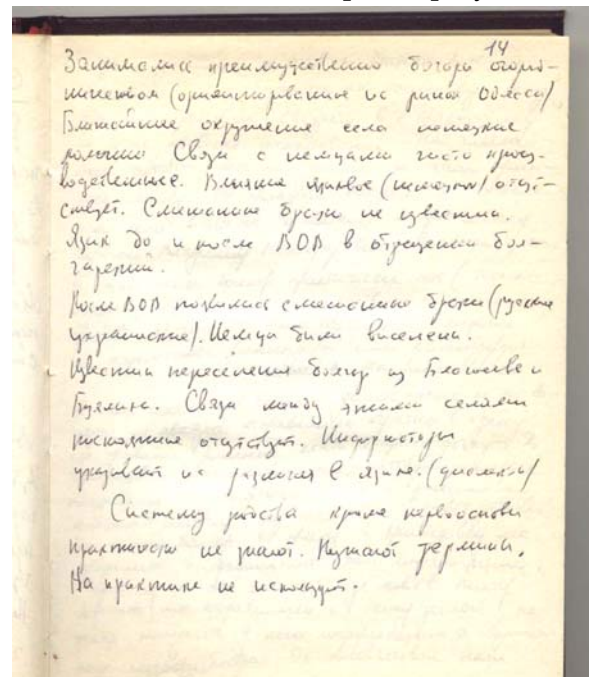 14
Занимались преимущественно болгары огород-
ничеством (ориентирование на рынок Одессы)
Ближайшие окружение села немецкие
колонии Связи с немцами чисто произ-
водственные. Влияние языковое (немецкого) отсут-
ствует. Смешанные браки не известны.
Язык до и после ВОВ в общении бол-
гарский.
После ВОВ появились смешанные браки (русские
украинские). Немцы были выселены.
Известны переселения болгар из Благоево и
Буялика. Связи между этими селами
отсутствуют. Информаторы
указывают на различия в языке. (диалекты)
Систему родства кроме первоосновы
практически не знают. термины.
На практике не используют.